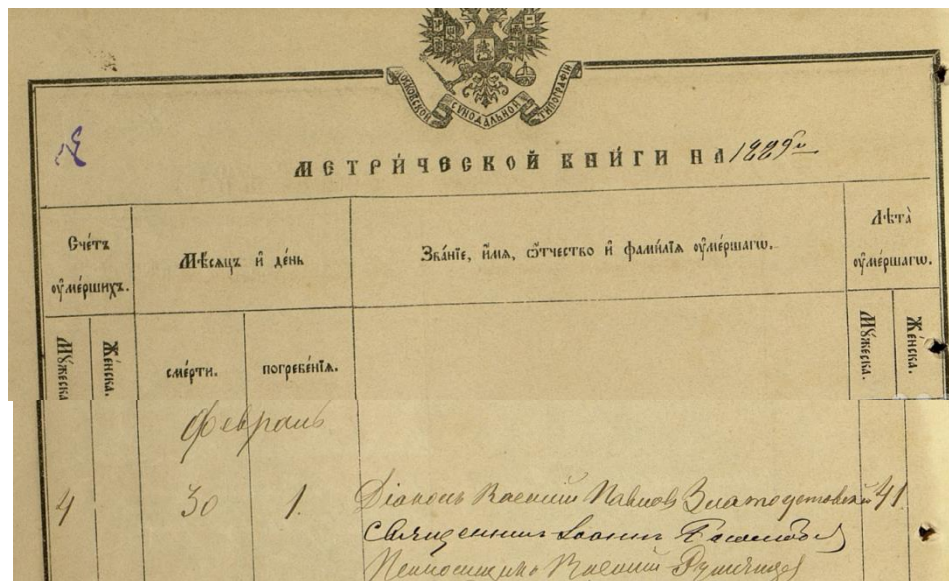 МОСКОВСКОЙ СѴНОДАЛЬНОЙ ТИПОГРАФІИ
МЕТРИ́ЧЕСКОЙ КНИ́ГИ НА 1889й
Сче́тъ ᲂу҆ме́ршихъ.
Мѣ́сяцъ и҆ де́нь
Зва́ніе, и҆́мя, ѻ҆́тчество и҆ фами́лія ᲂу҆ме́ршагѡ.
Лѣта̀ ᲂу҆ме́ршагѡ.
Мꙋ́жеска.
Же́нска.
сме́рти.
погребе́нїѧ.
Мꙋ́жеска.
Же́нска.
Февраль
4 30 1. Діаконъ Василий Павлов Златоустовский 41
Священникъ Іоаннъ
Василий Румянцев